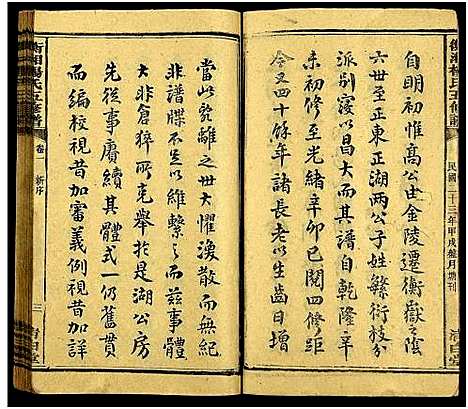 衡湘楊氏五修譜
民國二十三年甲戌歲月刊
清白堂
自明初惟高公世金陵遷衡嶽之陰
六世至正東正湖兩公子姓繁衍枝分
派別寖以具大其譜自乾隆辛
未初修至光緒辛卯已閱四修距
今又四十餘年諸長老以生齒日增
當此亂離之世大懼渙散而無紀
非譜牒不足以維繫之而茲事體
大非倉猝所克舉於是湖公房
先從事賡續其體式一仍舊貫
而編校視昔加審義例視昔加詳
衡湘楊氏五修譜
卷一
新序
三
清白堂